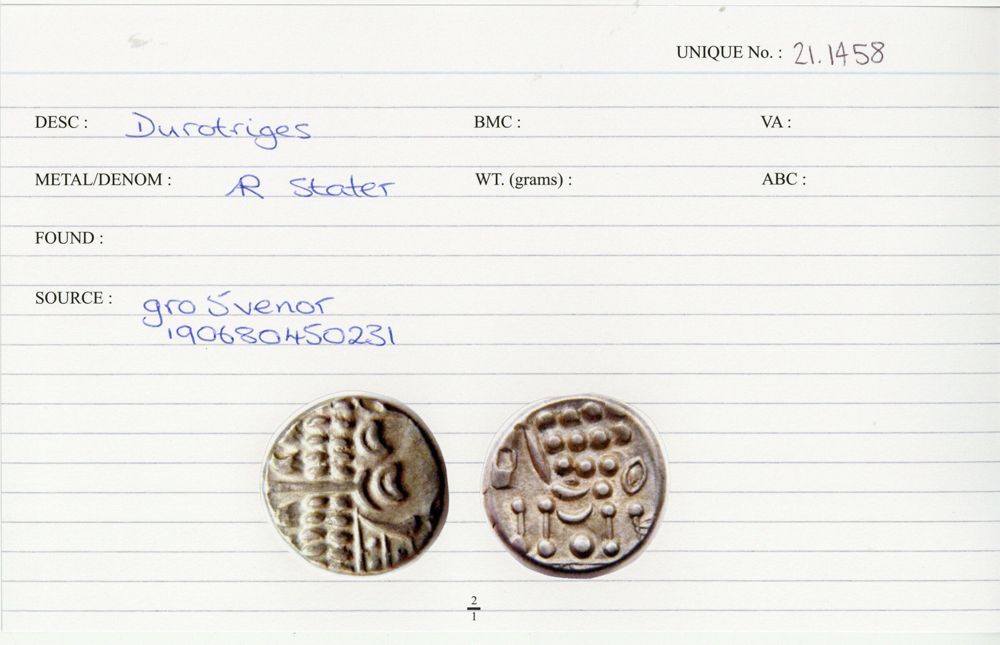 UNIQUE No. : 21.1458
DESC : Durotriges BMC : VA :
METAL/DENOM : AR Stater WT. (grams) : ABC :
FOUND :
SOURCE : grosvenor
190680450231
2
1